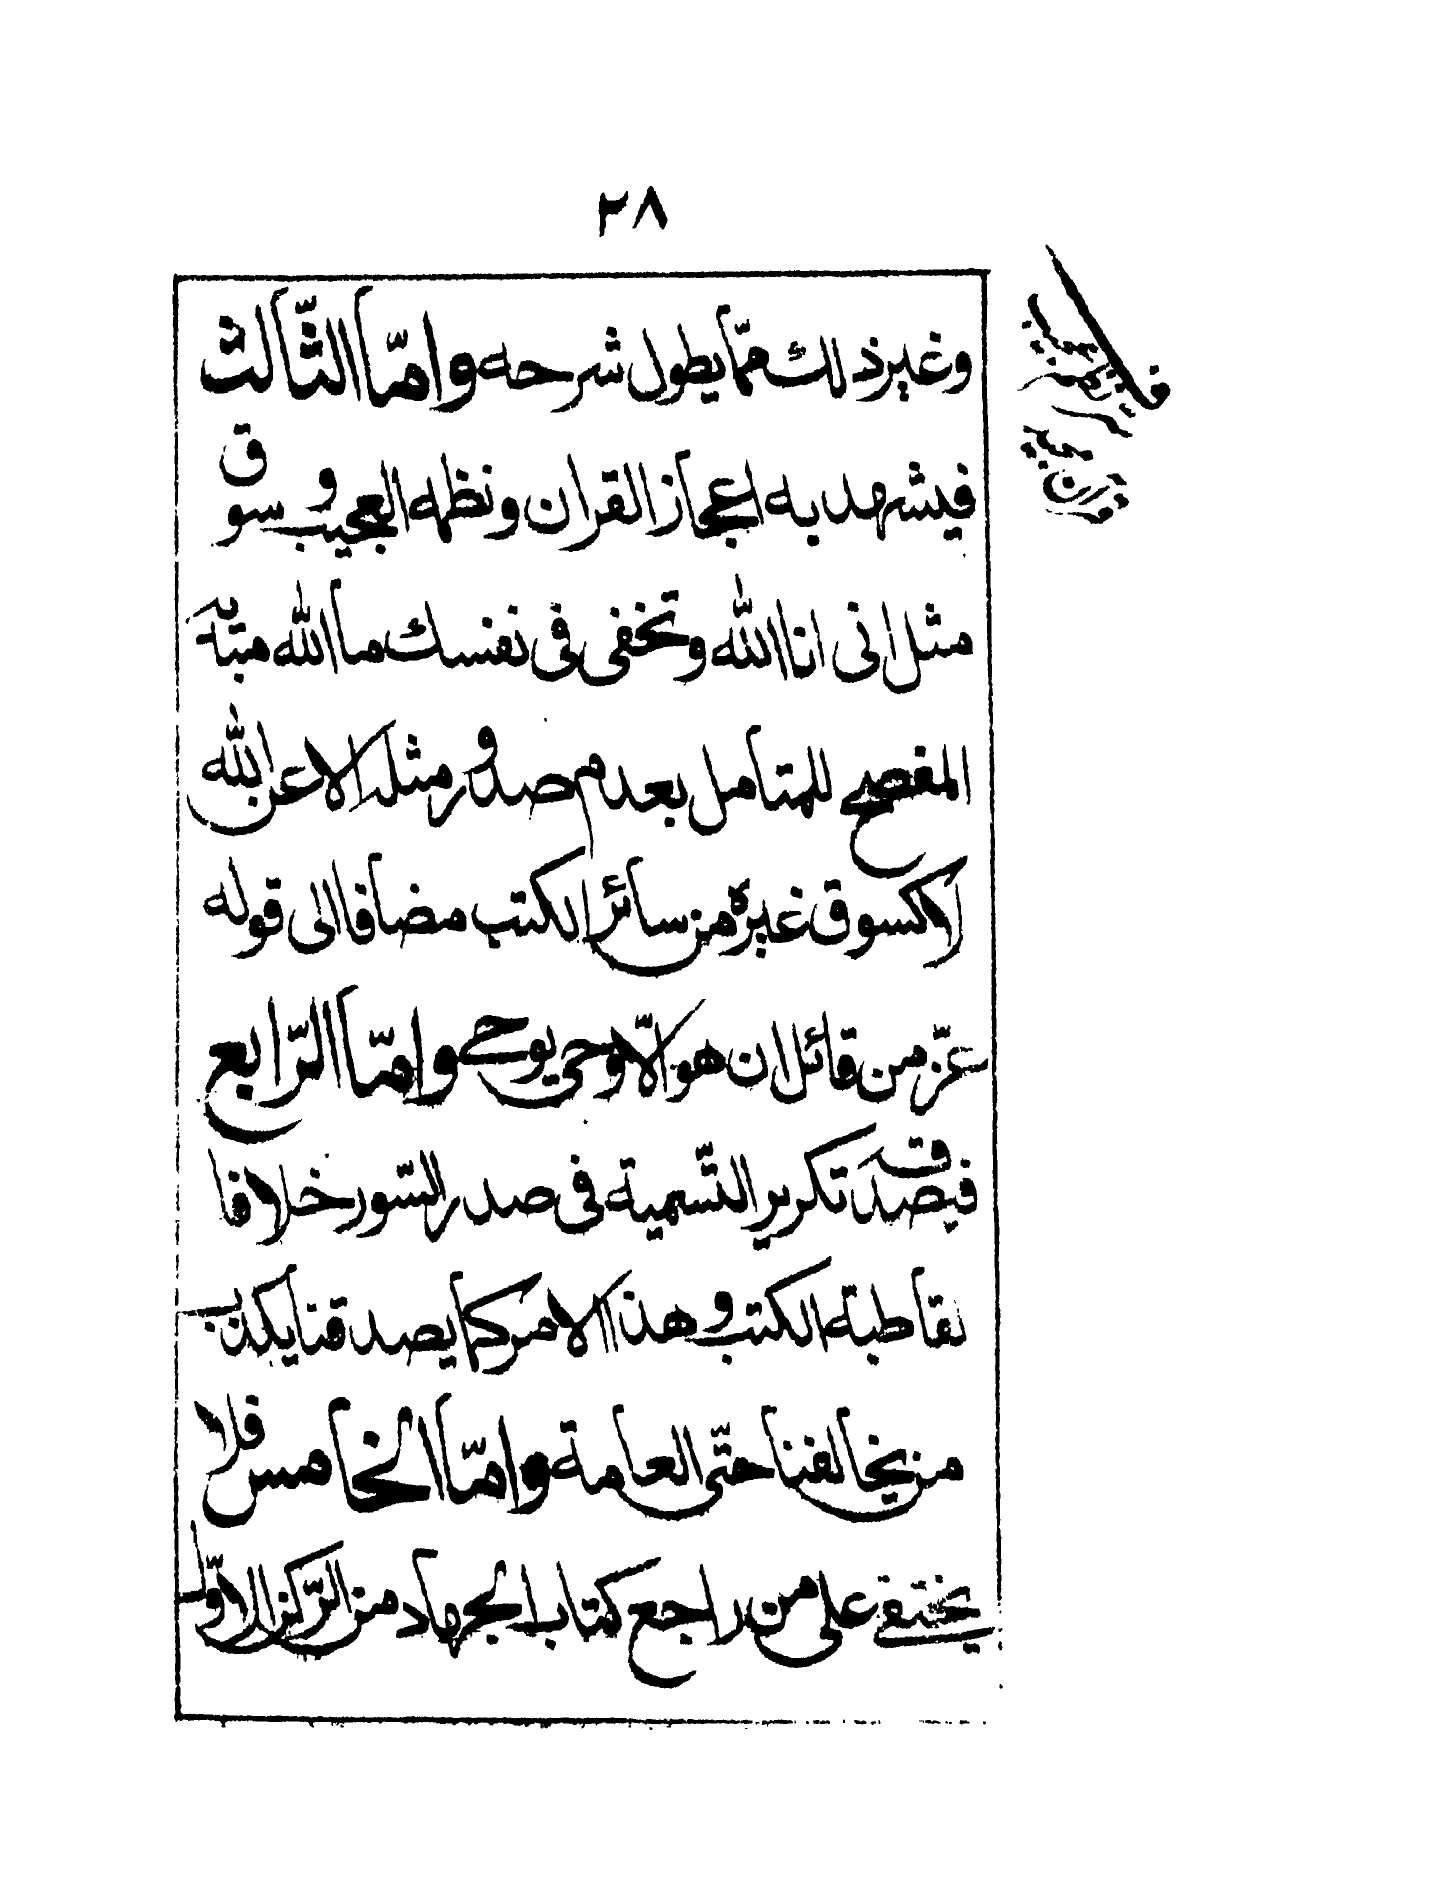 ٢٨
وغير ذلك ممّا يطول شرحه وامّا الثّالث
فيشهد به اعجاز القران ونظمه العجيب وسوق
مثل انى انا الله وتخفى فى نفسك ما الله مبتديه
المفصح للمتامل بعدم صدور مثله الا عن الله
لا كسوق غيره من سائر الكتب مضافا الى قوله
عزّ من قائل ان هو الّا وحى يوحى وامّا الرّابع
فيصدقه تكرير التّسمية فى صدر السّور خلافا
لقاطبة الكتب وهذا الامر كما يصدقنا يكذب
من يخالفنا حتّى العامة وامّا الخامس فلا
يختفى على من راجع كتاب الجهاد من الرّكن الاوّل